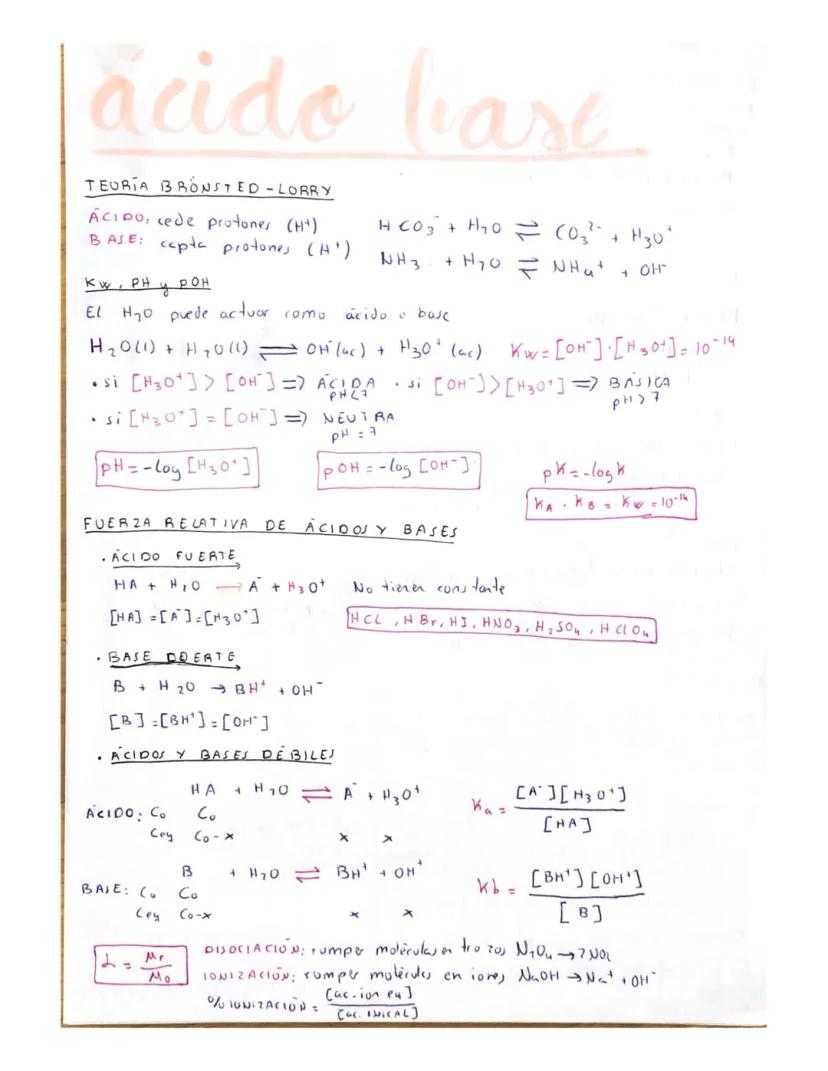 ácido base
TEORÍA BRÖNSTED-LORRY
ÁCIDO: cede protones (H⁺) HCO₃⁻ + H₂O ⇌ CO₃²⁻ + H₃O⁺
BASE: capta protones (H⁺) NH₃ + H₂O ⇌ NH₄⁺ + OH⁻
Kw, PH y pOH
El H₂O puede actuar como ácido o base
H₂O(l) + H₂O(l) ⇌ OH⁻(ac) + H₃O⁺(ac) Kw=[OH⁻]·[H₃O⁺]=10⁻¹⁴
• si [H₃O⁺] > [OH⁻] => ÁCIDA · si [OH⁻]>[H₃O⁺] => BÁSICA
pH<7 pH>7
• si [H₃O⁺] = [OH⁻] => NEUTRA
pH = 7
pH = -log [H₃O⁺] pOH = -log [OH⁻] pK = -logK
KA · KB = Kw = 10⁻¹⁴
FUERZA RELATIVA DE ÁCIDOS Y BASES
· ÁCIDO FUERTE
HA + H₂O → A⁻ + H₃O⁺ No tienen constante
[HA] = [A⁻] = [H₃O⁺] HCL, HBr, HI, HNO₃, H₂SO₄, HClO₄
· BASE
B + H₂O → BH⁺ + OH⁻
[B] = [BH⁺] = [OH⁻]
· ÁCIDOS Y BASES DÉBILES
HA + H₂O ⇌ A⁻ + H₃O⁺ Ka = [A⁻][H₃O⁺] / [HA]
ÁCIDO: Co Co
Ceq Co-x x x
B + H₂O ⇌ BH⁺ + OH⁺ Kb = [BH⁺][OH⁺] / [B]
BASE: Co Co
Ceq Co-x x x
DISOCIACIÓN: romper moléculas en trozos N₂O₄ → 2NO₂
α = Mr / Mo IONIZACIÓN: romper moléculas en iones NaOH → Na⁺ + OH⁻
% IONIZACIÓN = [ac. ion eq] / [ac. INICAL]